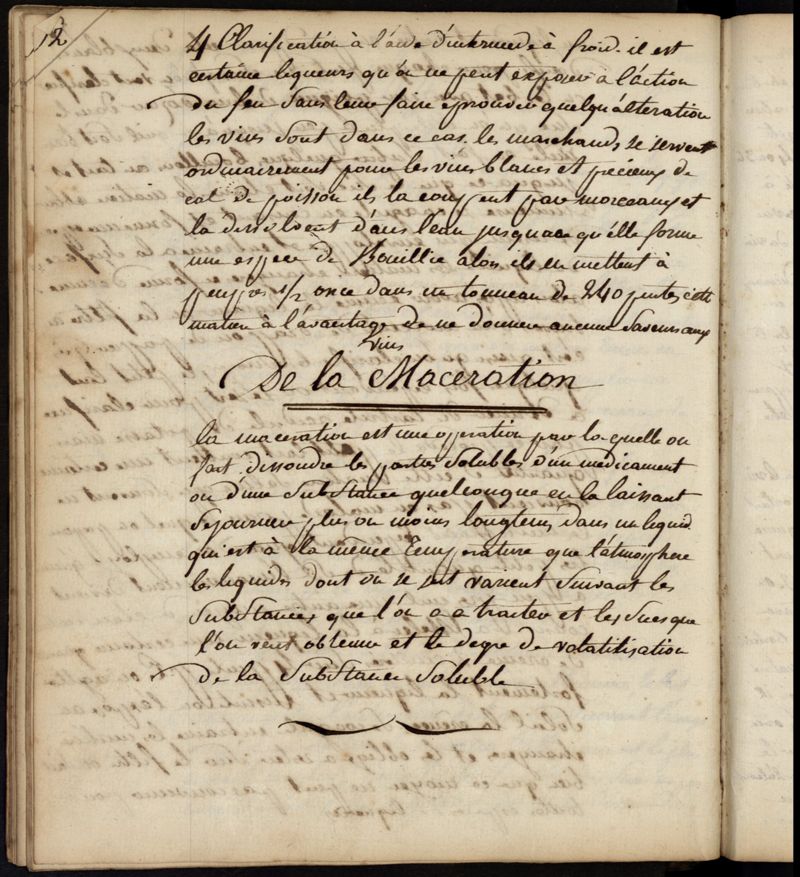 12
4 Clarification à l'aide d'intermede à froid. il est
certaine liqueurs qu'on ne peut exposer a l'action
du feu sans leur faire eprouver quelqu'alteration
les vins sont dans ce cas. les marchands se servent
ordinairement pour les vins blancs et précieux de
col de poisson ils la coupent par morceaux et
la dissolvent dans l'eau jusquace qu'elle forme
une espece de Bouillie alors ils en mettent à
peupres 1/2 once dans un tonneau de 240 pintes cette
matiere à l'avantage de ne donner aucune saveurs aux
vins
De la Maceration
la maceration est une operation par la quelle on
fait dissoudre les parties solubles d'un medicament
ou d'une substance quelconque en la laissant
sejourner plus ou moins longtems dans un liquid.
qui est à la même temperature que l'atmosphere
les liquides dont on se sert varient suivant les
substances que l'on a a traiter et les sucs que
l'on veut obtenir et le degre de volatilisation
de la substance soluble